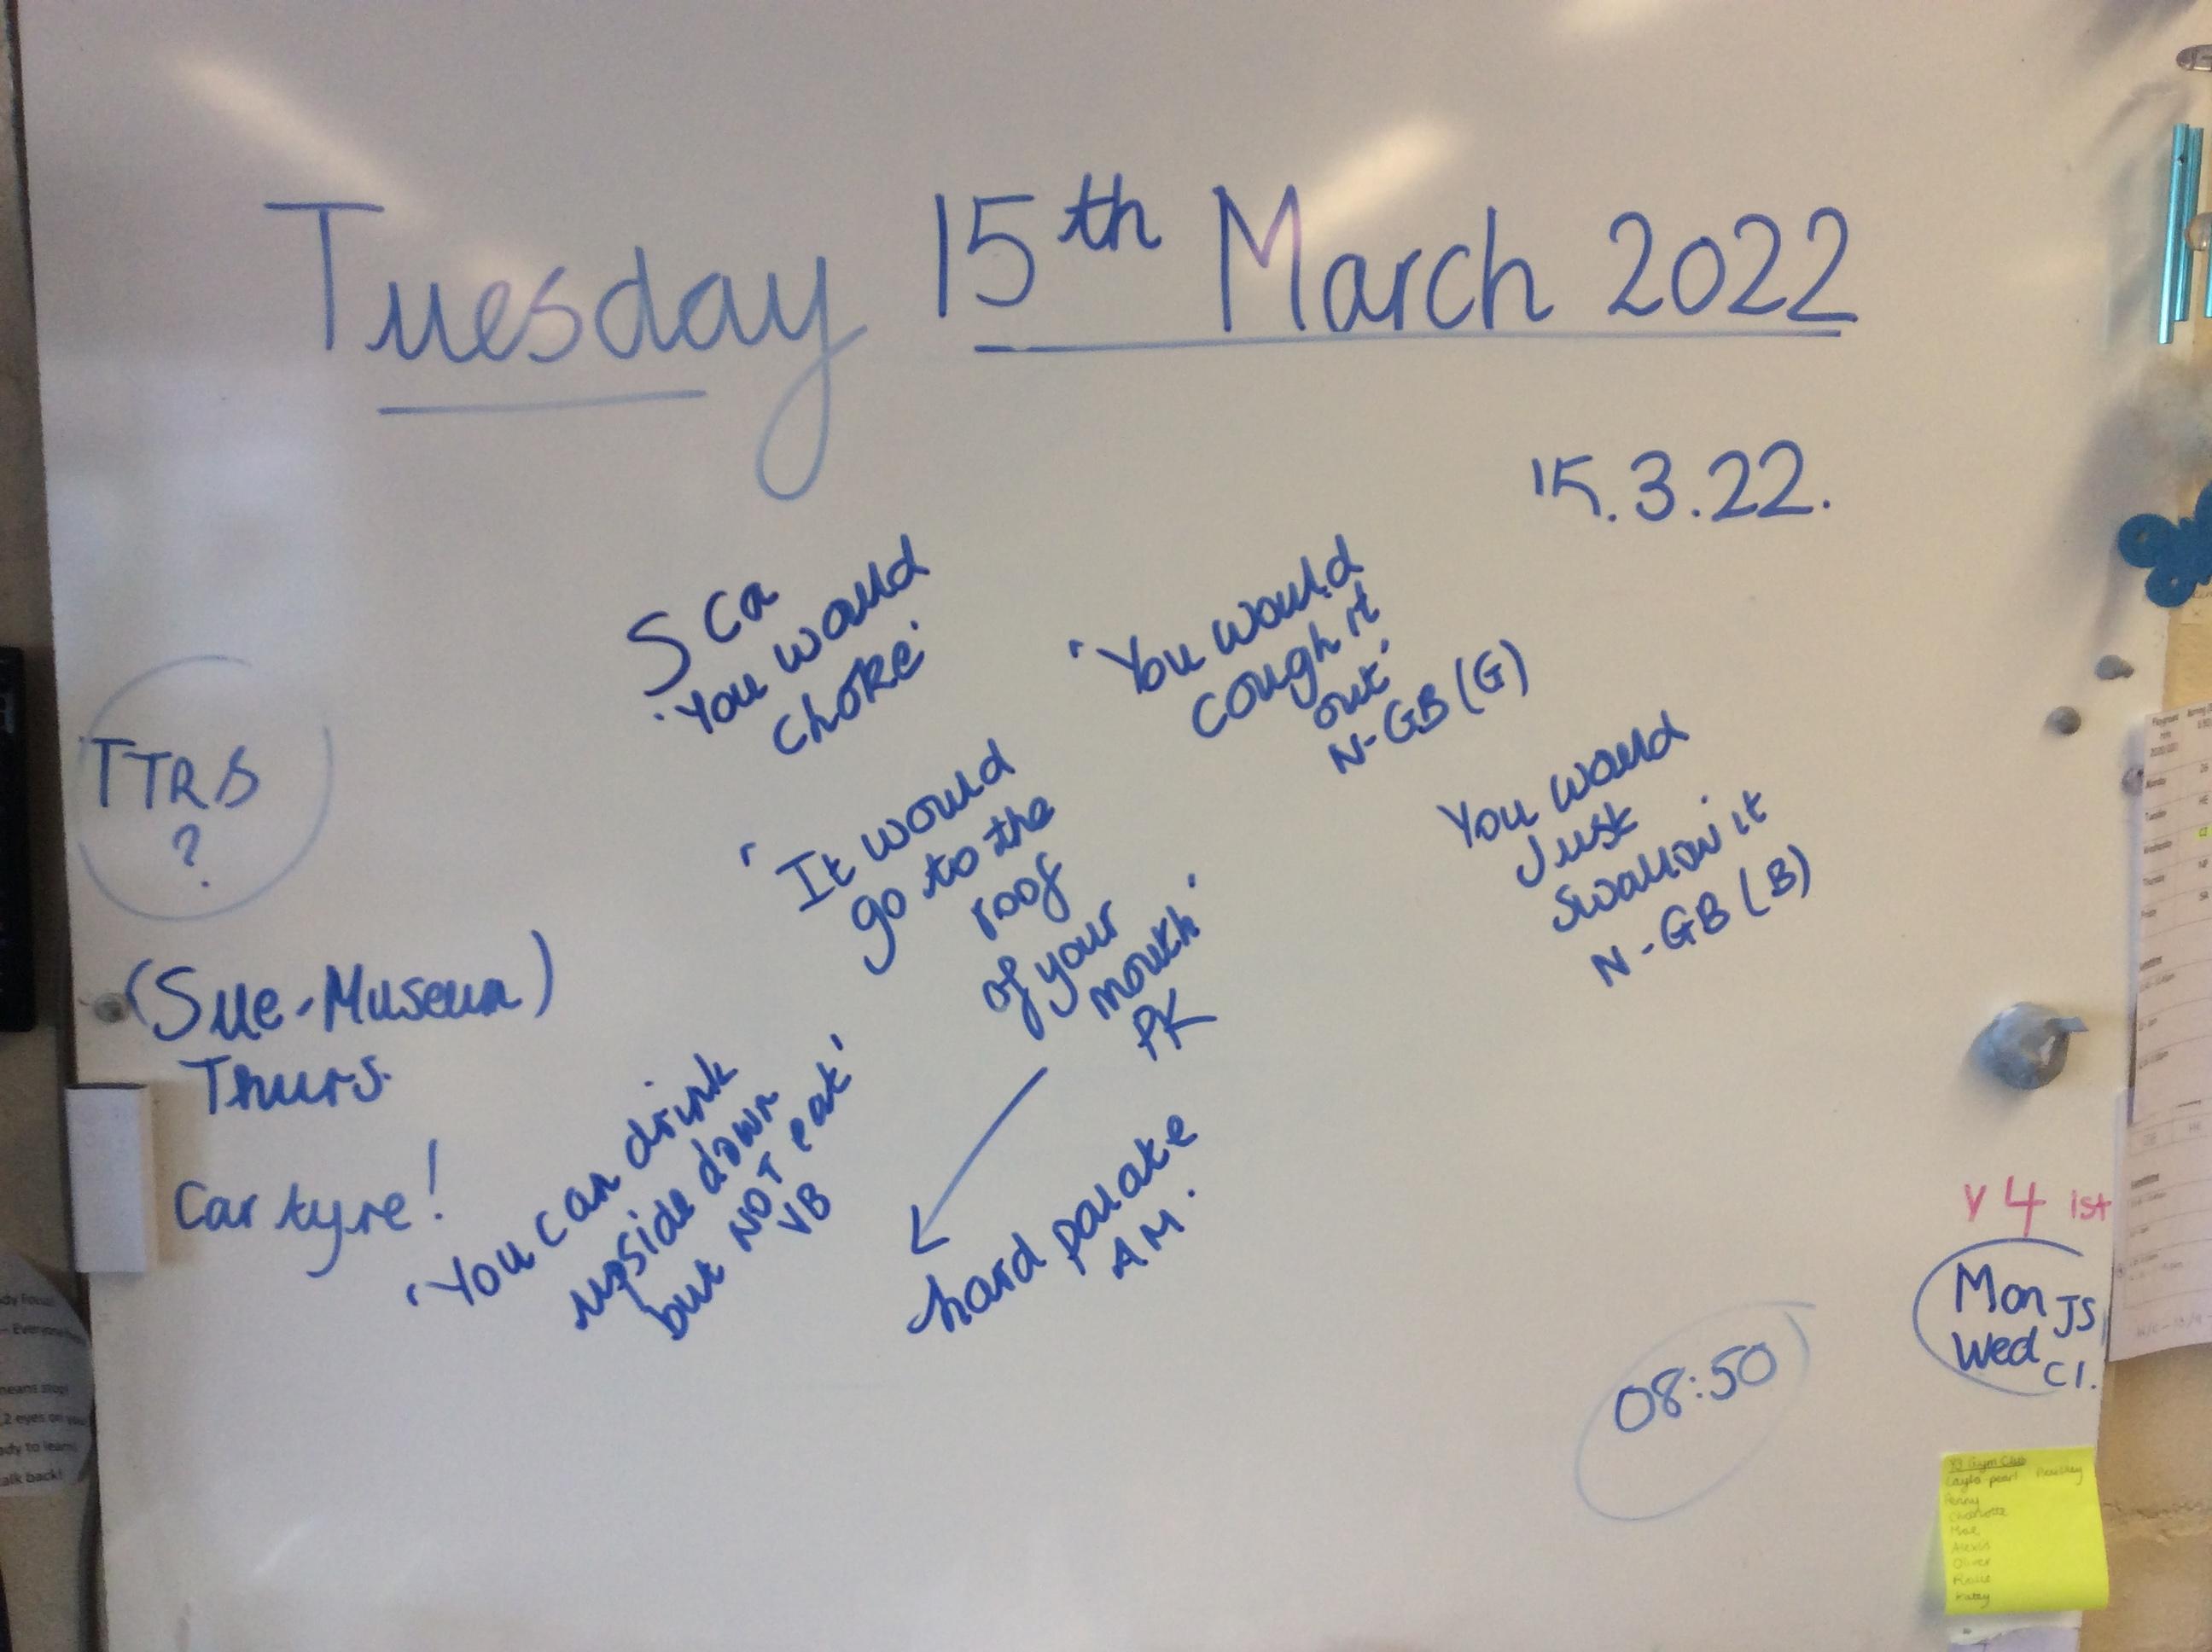 Tuesday 15th March 2022
15.3.22.
S Ca
'You would
choke'
'You would
cough it
out'
N-GB (G)
'It would
go to the
roof
of your
mouth'
PK
You would
Just
swallow it
N-GB (B)
TTRS
?
(Sue-Museum)
Thurs.
Car tyre!
'You can drink
upside down
but NOT eat'
VB
hard palate
AM.
08:50
Y4 1st
Mon JS
Wed CI.
Y3 Gym Club
Layla pearl
Penny
Charlotte
Mae
Alexis
Oliver
Katey
means stop!
2 eyes on you